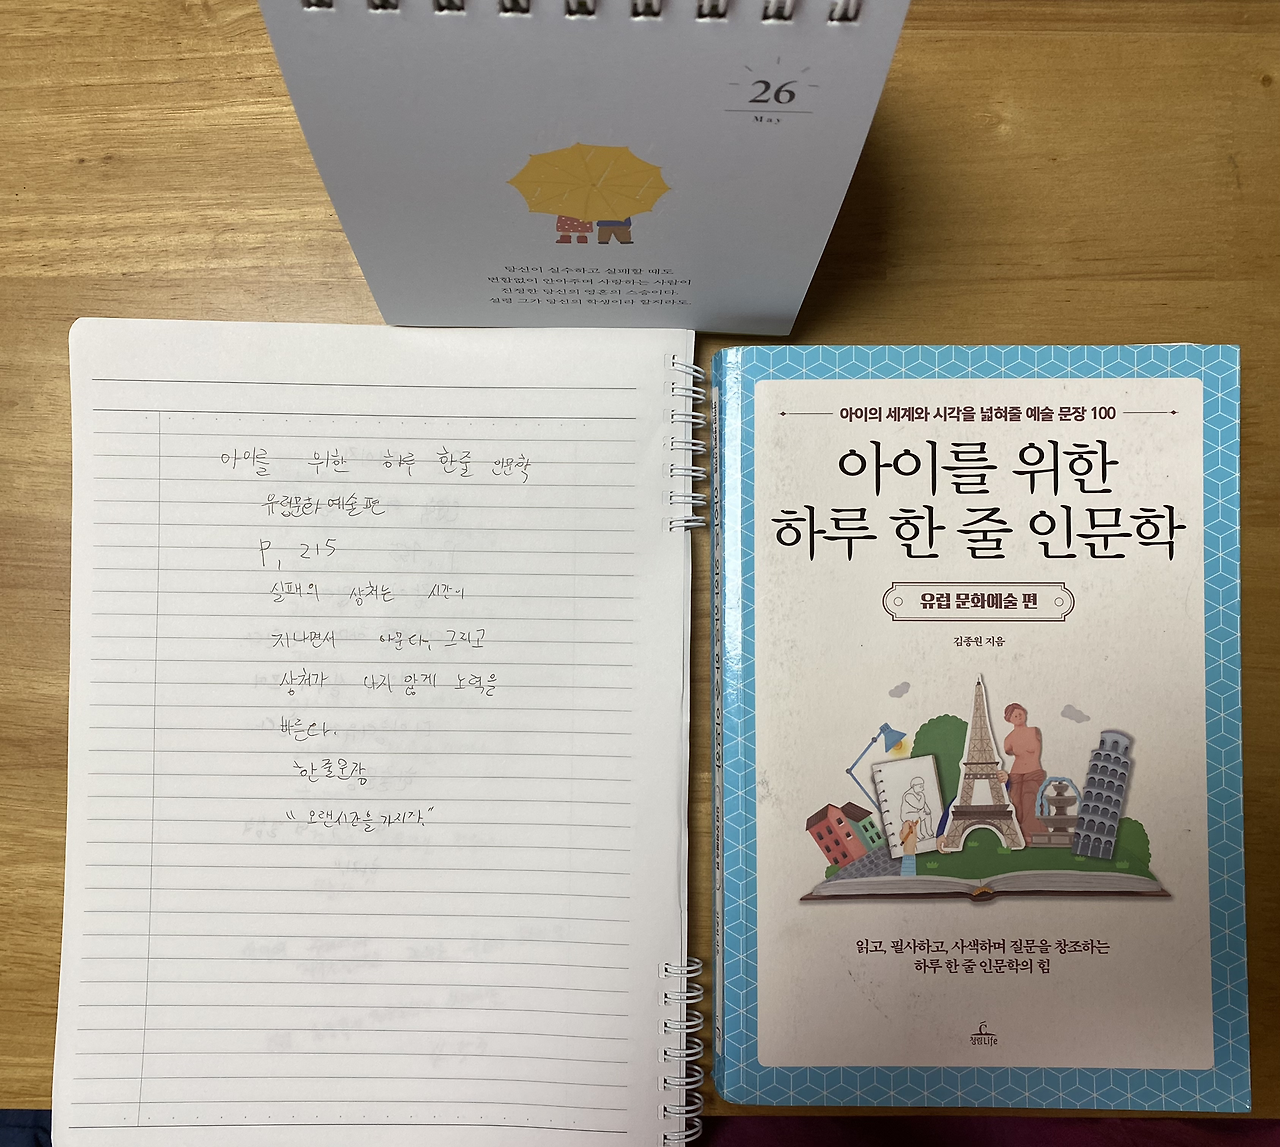 26
May
당신이 실수하고 실패할 때도
변함없이 안아주며 사랑하는 사람이
진정한 당신의 영혼의 스승이다.
설령 그가 당신의 학생이라 할지라도.
아이를 위한 하루 한줄 인문학
유럽문화예술편
P. 215
실패의 상처는 시간이
지나면서 아문다. 그리고
상처가 나지 않게 노력을
빠른다.
한줄문장
"오랜시간을 가지자."
아이의 세계와 시각을 넓혀줄 예술 문장 100
아이를 위한
하루 한 줄 인문학
유럽 문화예술 편
김종원 지음
읽고, 필사하고, 사색하며 질문을 창조하는
하루 한 줄 인문학의 힘
청림Life